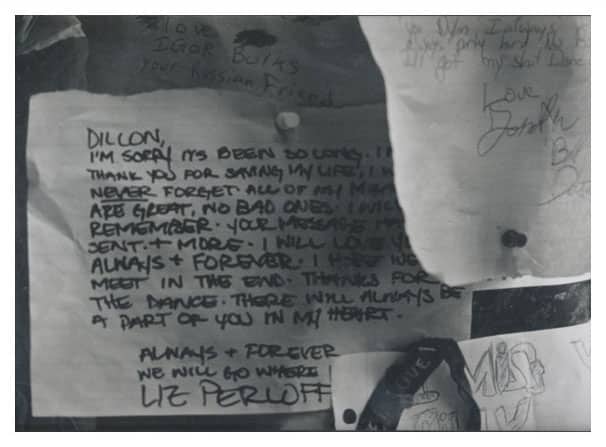 Love
IGOR
your Russian Friend
DILLON,
I'M SORRY IT'S BEEN SO LONG. I
THANK YOU FOR SAVING MY LIFE, I
NEVER FORGET. ALL OF MY
ARE GREAT, NO BAD ONES. I
REMEMBER. YOUR MESSAGE
SENT. + MORE. I WILL LOVE
ALWAYS + FOREVER. I HOPE WE
MEET IN THE END. THANKS FOR
THE DANCE. THERE WILL ALWAYS BE
A PART OF YOU IN MY HEART.
ALWAYS + FOREVER
WE WILL GO WHERE
LIZ PERLOFF
I always
pray hard
got my
Love
LOVE!
I MISS